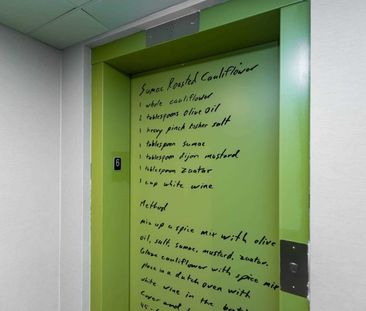 Sumac Roasted Cauliflower
1 whole cauliflower
2 tablespoons olive oil
1 heavy pinch kosher salt
1 tablespoon sumac
1 tablespoon dijon mustard
1 tablespoon zaatar
1 cup white wine
6
Method
mix up a spice mix with olive
oil, salt, sumac, mustard, zaatar.
Glaze cauliflower with spice mix
place in a dutch oven with
white wine in the
Cover and